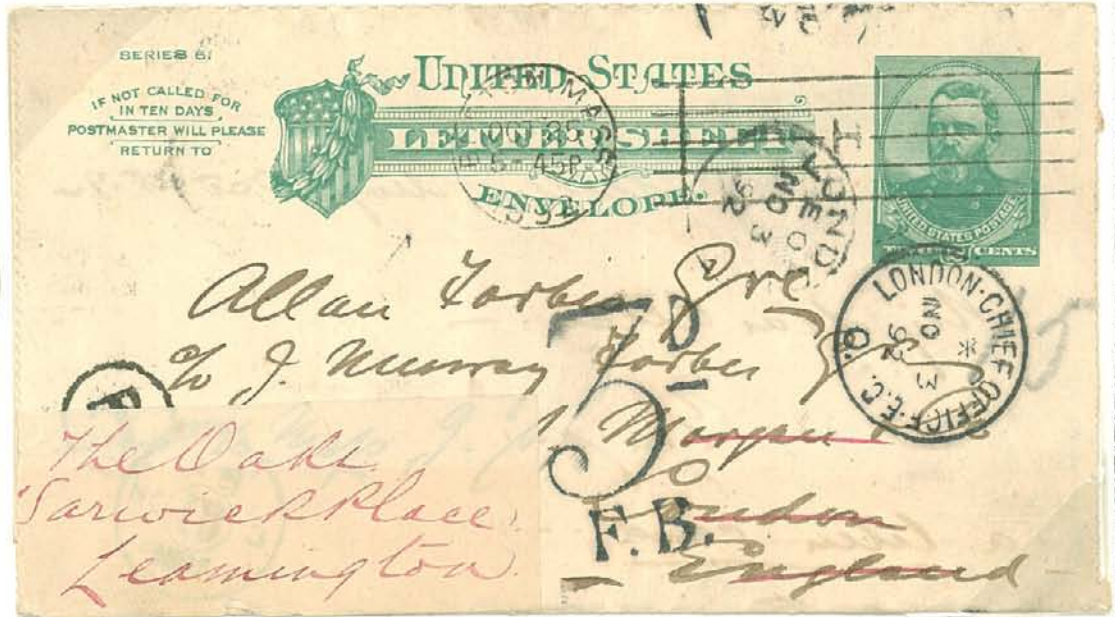 SERIES 6.
IF NOT CALLED FOR
IN TEN DAYS
POSTMASTER WILL PLEASE
RETURN TO
UNITED STATES
LETTER SHEET
ENVELOPE.
MASS
OCT 25
5-45P
UNITED STATES POSTAGE
CENTS
LOND
NO 3
92
LONDON·CHIEF OFFICE·E.C.
NO 3
92
Allan Forbes
c/o J. Murray Forbes
London
England
5D
F.B.
The Oaks
Warwick Place
Leamington